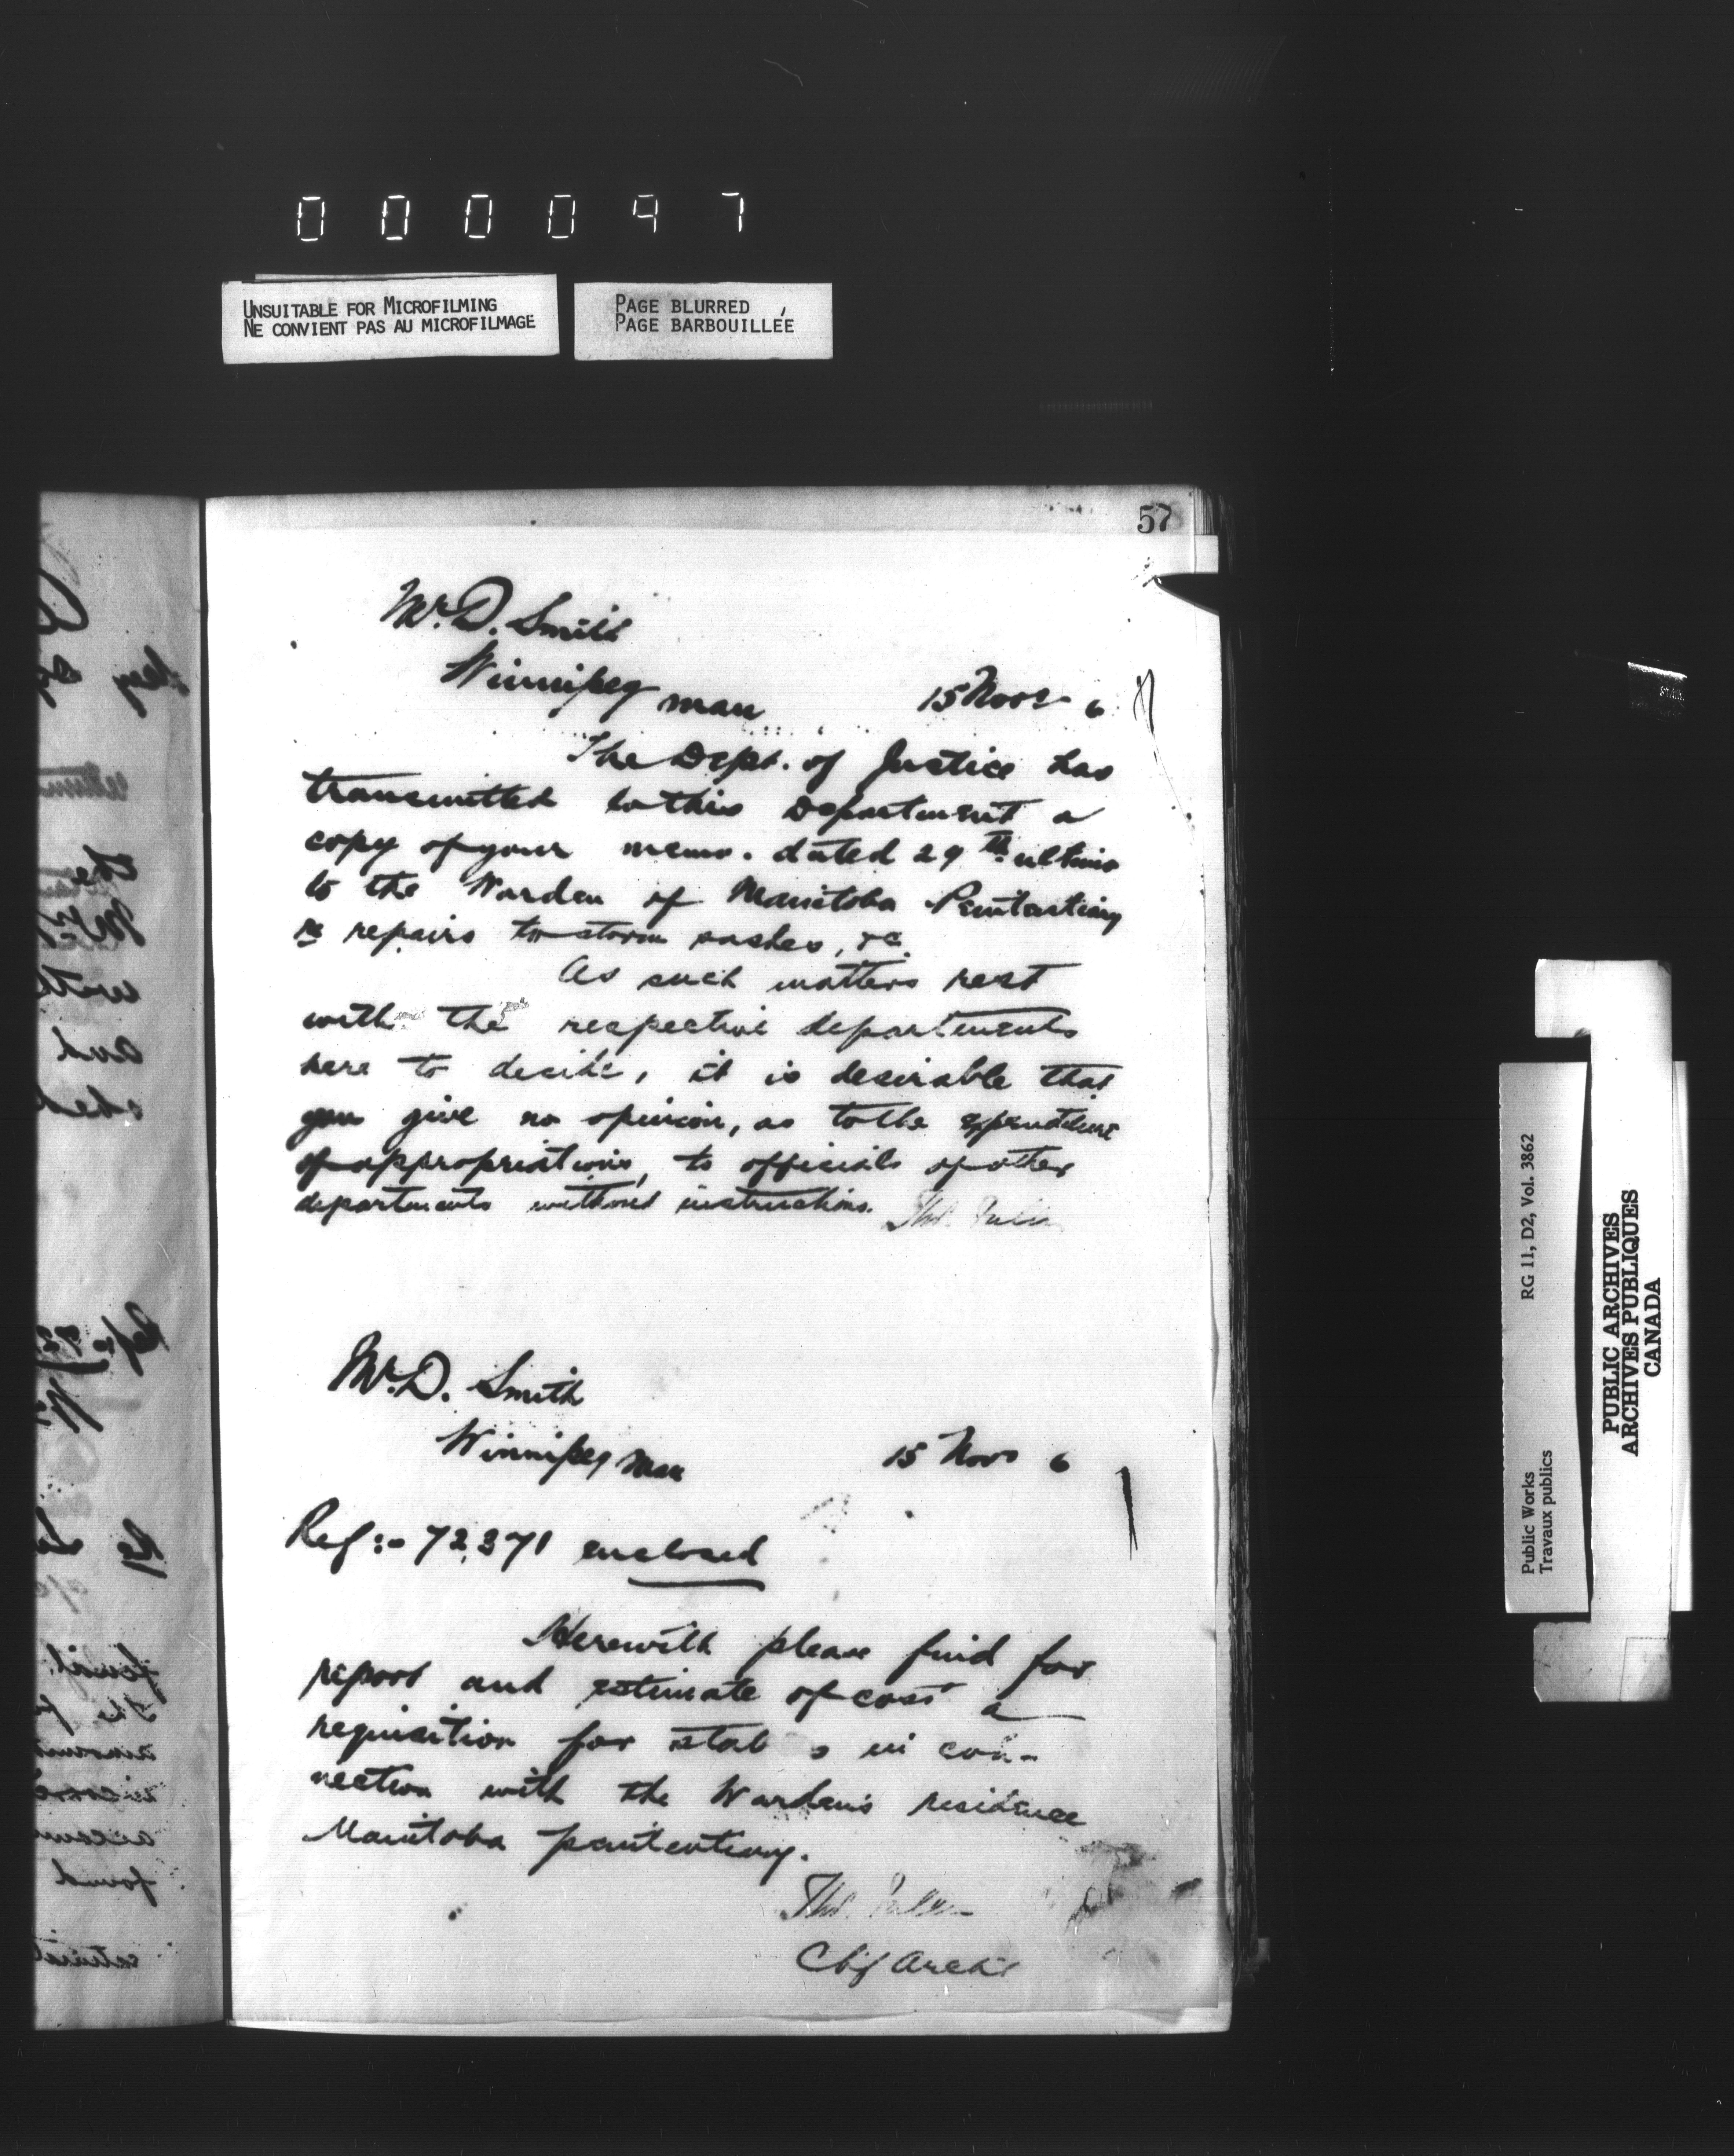 000097
UNSUITABLE FOR MICROFILMING
NE CONVIENT PAS AU MICROFILMAGE
PAGE BLURRED
PAGE BARBOUILLÉE
57
Mr. D. Smith
Winnipeg Man
15 Nov 6
The Dept. of Justice has
transmitted to this Department a
copy of your memo. dated 29th ultimo
to the Warden of Manitoba Penitentiary
re repairs to storm sashes, &c.
As such matters rest
with the respective departments
here to decide, it is desirable that
you give no opinion, as to the expenditure
of appropriations, to officials of other
departments without instructions.
Thos.
Mr. D. Smith
Winnipeg Man
15 Nov 6
Ref:- 72,371 enclosed
Herewith please find for
report and estimate of cost a
requisition for stab s in con-
nection with the Warden's residence
Manitoba penitentiary.
Thos.
Chf Archt
Public Works
Travaux publics
RG 11, D2, Vol. 3862
PUBLIC ARCHIVES
ARCHIVES PUBLIQUES
CANADA